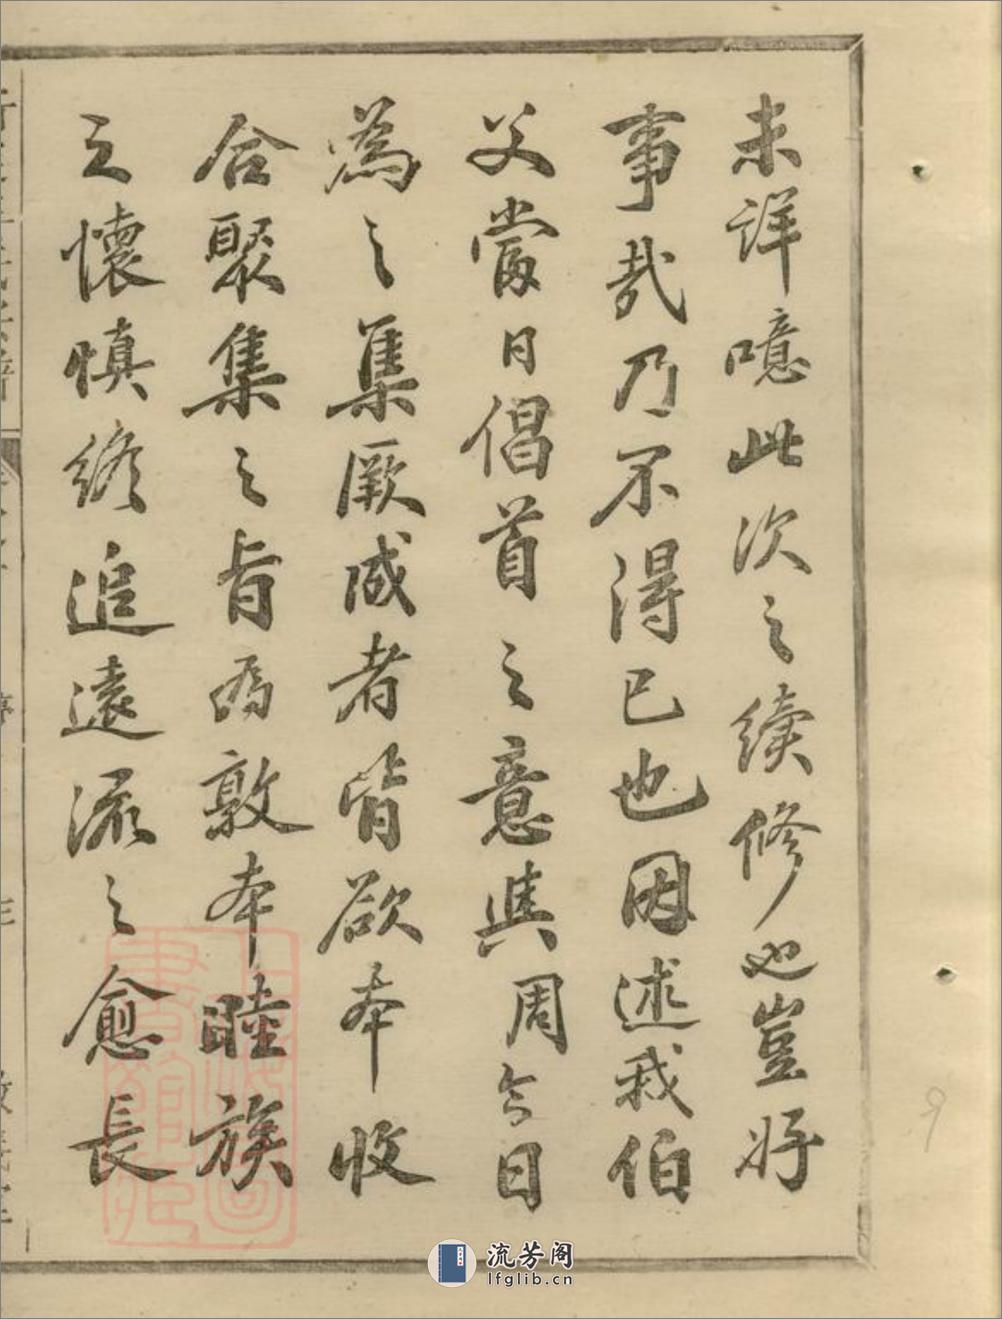 未詳噫此次之續修也豈好
事哉乃不得已也因述我伯
父當日倡首之意與周今日
為之集厥成者皆欲本收
合聚集之旨為敦本睦族
之懷慎終追遠流之愈長
上海圖書館藏
流芳阁
lfglib.cn
9